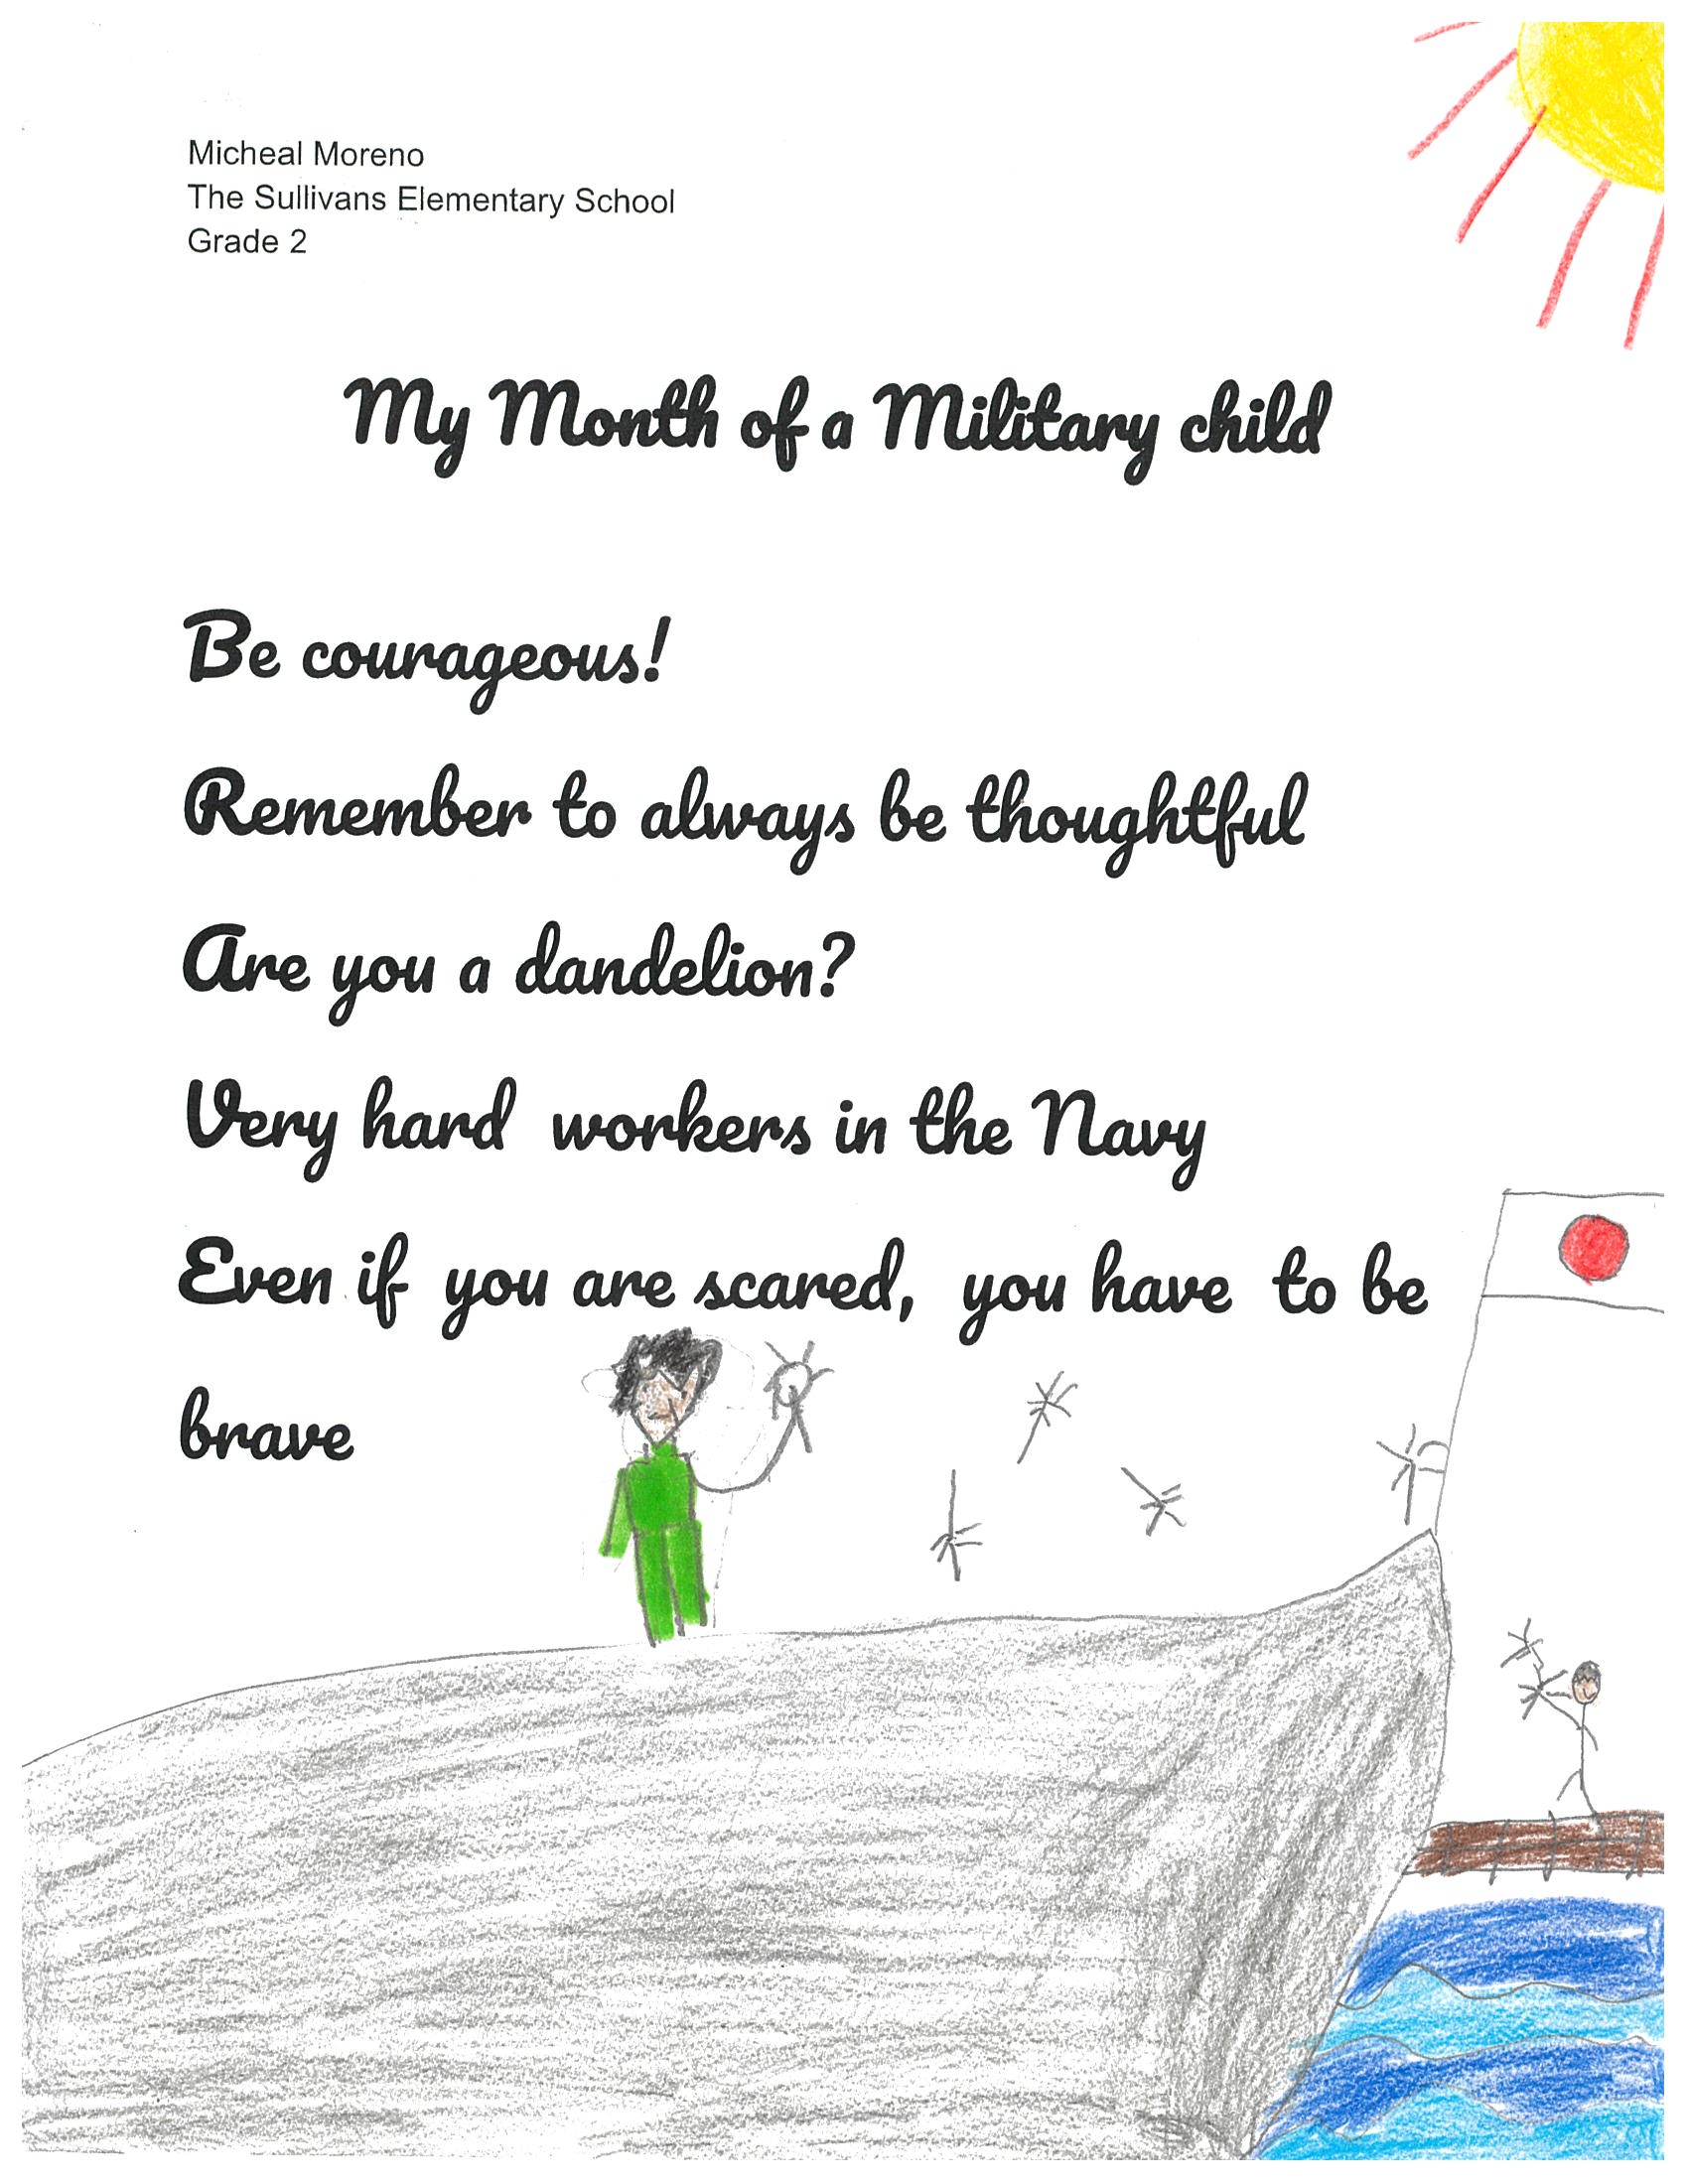 Micheal Moreno
The Sullivans Elementary School
Grade 2
My Month of a Military child
Be courageous!
Remember to always be thoughtful
Are you a dandelion?
Very hard workers in the Navy
Even if you are scared, you have to be
brave